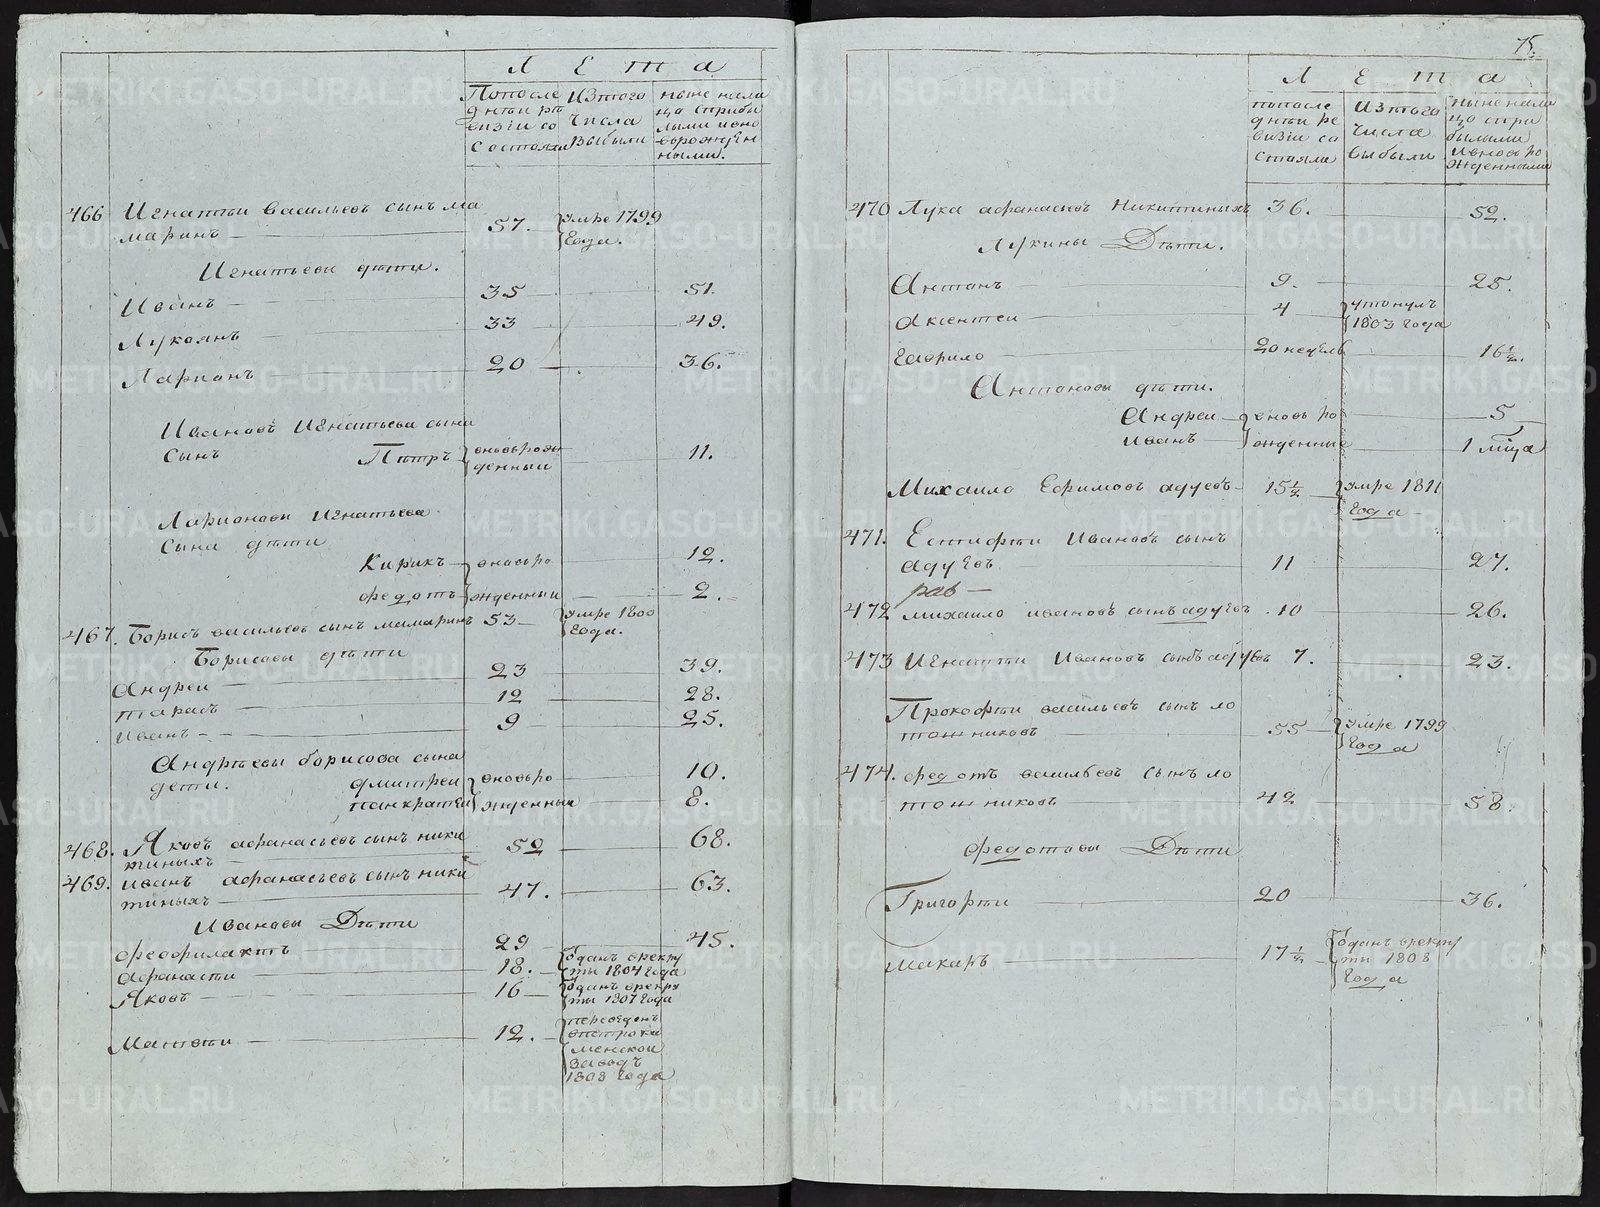 Лета
Попосле
днѣи ре
визіи со
стояли
Изтого
Числа
Выбыли
ныне нали
цо сприбы
лыми ивно
ворожден
ными.
466 Игнатѣи васильевъ сынъ ма
маринъ 57. умре 1799
Года.
Игнатьевы дѣти.
Иванъ 35 51.
Лукоянъ 33 49.
Ларионъ 20 36.
Ивановъ Игнатьева сына
сынъ Пѣтръ вновьрож
денныи 11.
Ларионовы Игнатьева
сына дѣти
Кирикъ вновьро 12.
федотъ жденныи 2.
467. Борисъ васильевъ сынъ мамаринъ 53 умре 1800
Года.
Борисовы дѣти
Андреи 23 39.
тарасъ 12 28.
иванъ 9 25.
Андрѣевы борисова сына
дети. дмитреи вновьро 10.
панкратеи жденныи 8.
468. Яковъ афанасьевъ сынъ ники
тиныхъ 52 68.
469. иванъ афанасьевъ сынъ ники
тиныхъ 47. 63.
Ивановы Дѣти
феофилактъ 29 45.
афанасти 18. Одань врекру
ты 1804 Года
Яковъ 16 Одань врекру
ты 1807 Года
Матвѣи 12. переведенъ
менской
заводъ
1808 Года
75.
Лета
попосле
днѣи ре
визіи со
стояли
Изтого
Числа
выбыли
ныне нали
цо спри
былыми
ивновь ро
жденными
470 Лука афанасьевъ Никитиныхъ 36. 52.
Лукины Дѣти.
Антонъ 9. 25.
Аксентеи 4 утонулъ
1803 Года
Гаврило 20 недель 16 1/2.
Антоновы дѣти.
Андреи вновь ро 5
иванъ жденные 1 мѣца
Михаило Ефимовъ адуевъ 15 1/2 умре 1811
Года
471. Естифѣи Ивановъ сынъ
адуевъ 11 27.
рав
472 михаило ивановъ сынъ адуевъ 10 26.
473 Игнатѣи Ивановъ сынъ адуевъ 7. 23.
Прокофѣи васильевъ сынъ ло
тошниковъ 55 умре 1799
Года
474. федотъ васильевъ сынъ ло
тошниковъ 42 58.
федотовы Дѣти
Григорѣи 20 36.
макаръ 17 1/2 Одань врекру
ты 1808
Года
METRIKI.GASO-URAL.RU